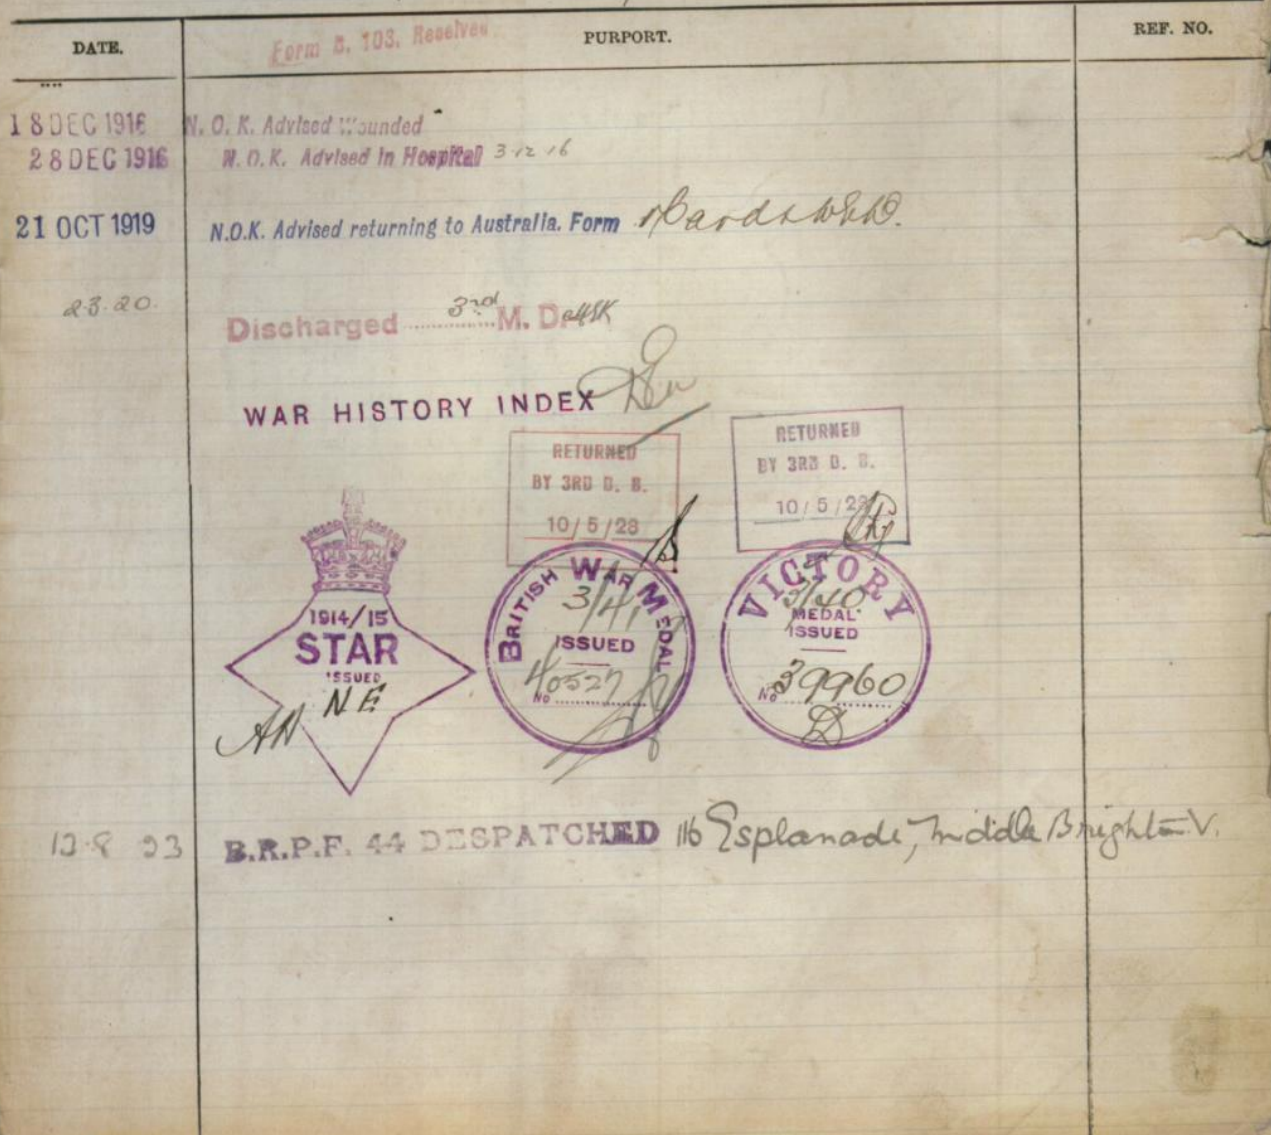 DATE.
Form B. 103. Received
PURPORT.
REF. NO.
18 DEC 1916 N. O. K. Advised Wounded
28 DEC 1916 N. O. K. Advised in Hospital 3 12 16
21 OCT 1919 N.O.K. Advised returning to Australia. Form
2.3.20. Discharged 3rd M. D.
WAR HISTORY INDEX
RETURNED
BY 3RD D. B.
10/5/23
RETURNED
BY 3RD D. B.
10/5/23
1914/15
STAR
ISSUED
N.E.
BRITISH WAR MEDAL
3/41
ISSUED
No 40527
VICTORY
3/40
MEDAL
ISSUED
No 39960
12.8 23 B.R.P.F. 44 DESPATCHED 116 Esplanade, Middle Brighton V.